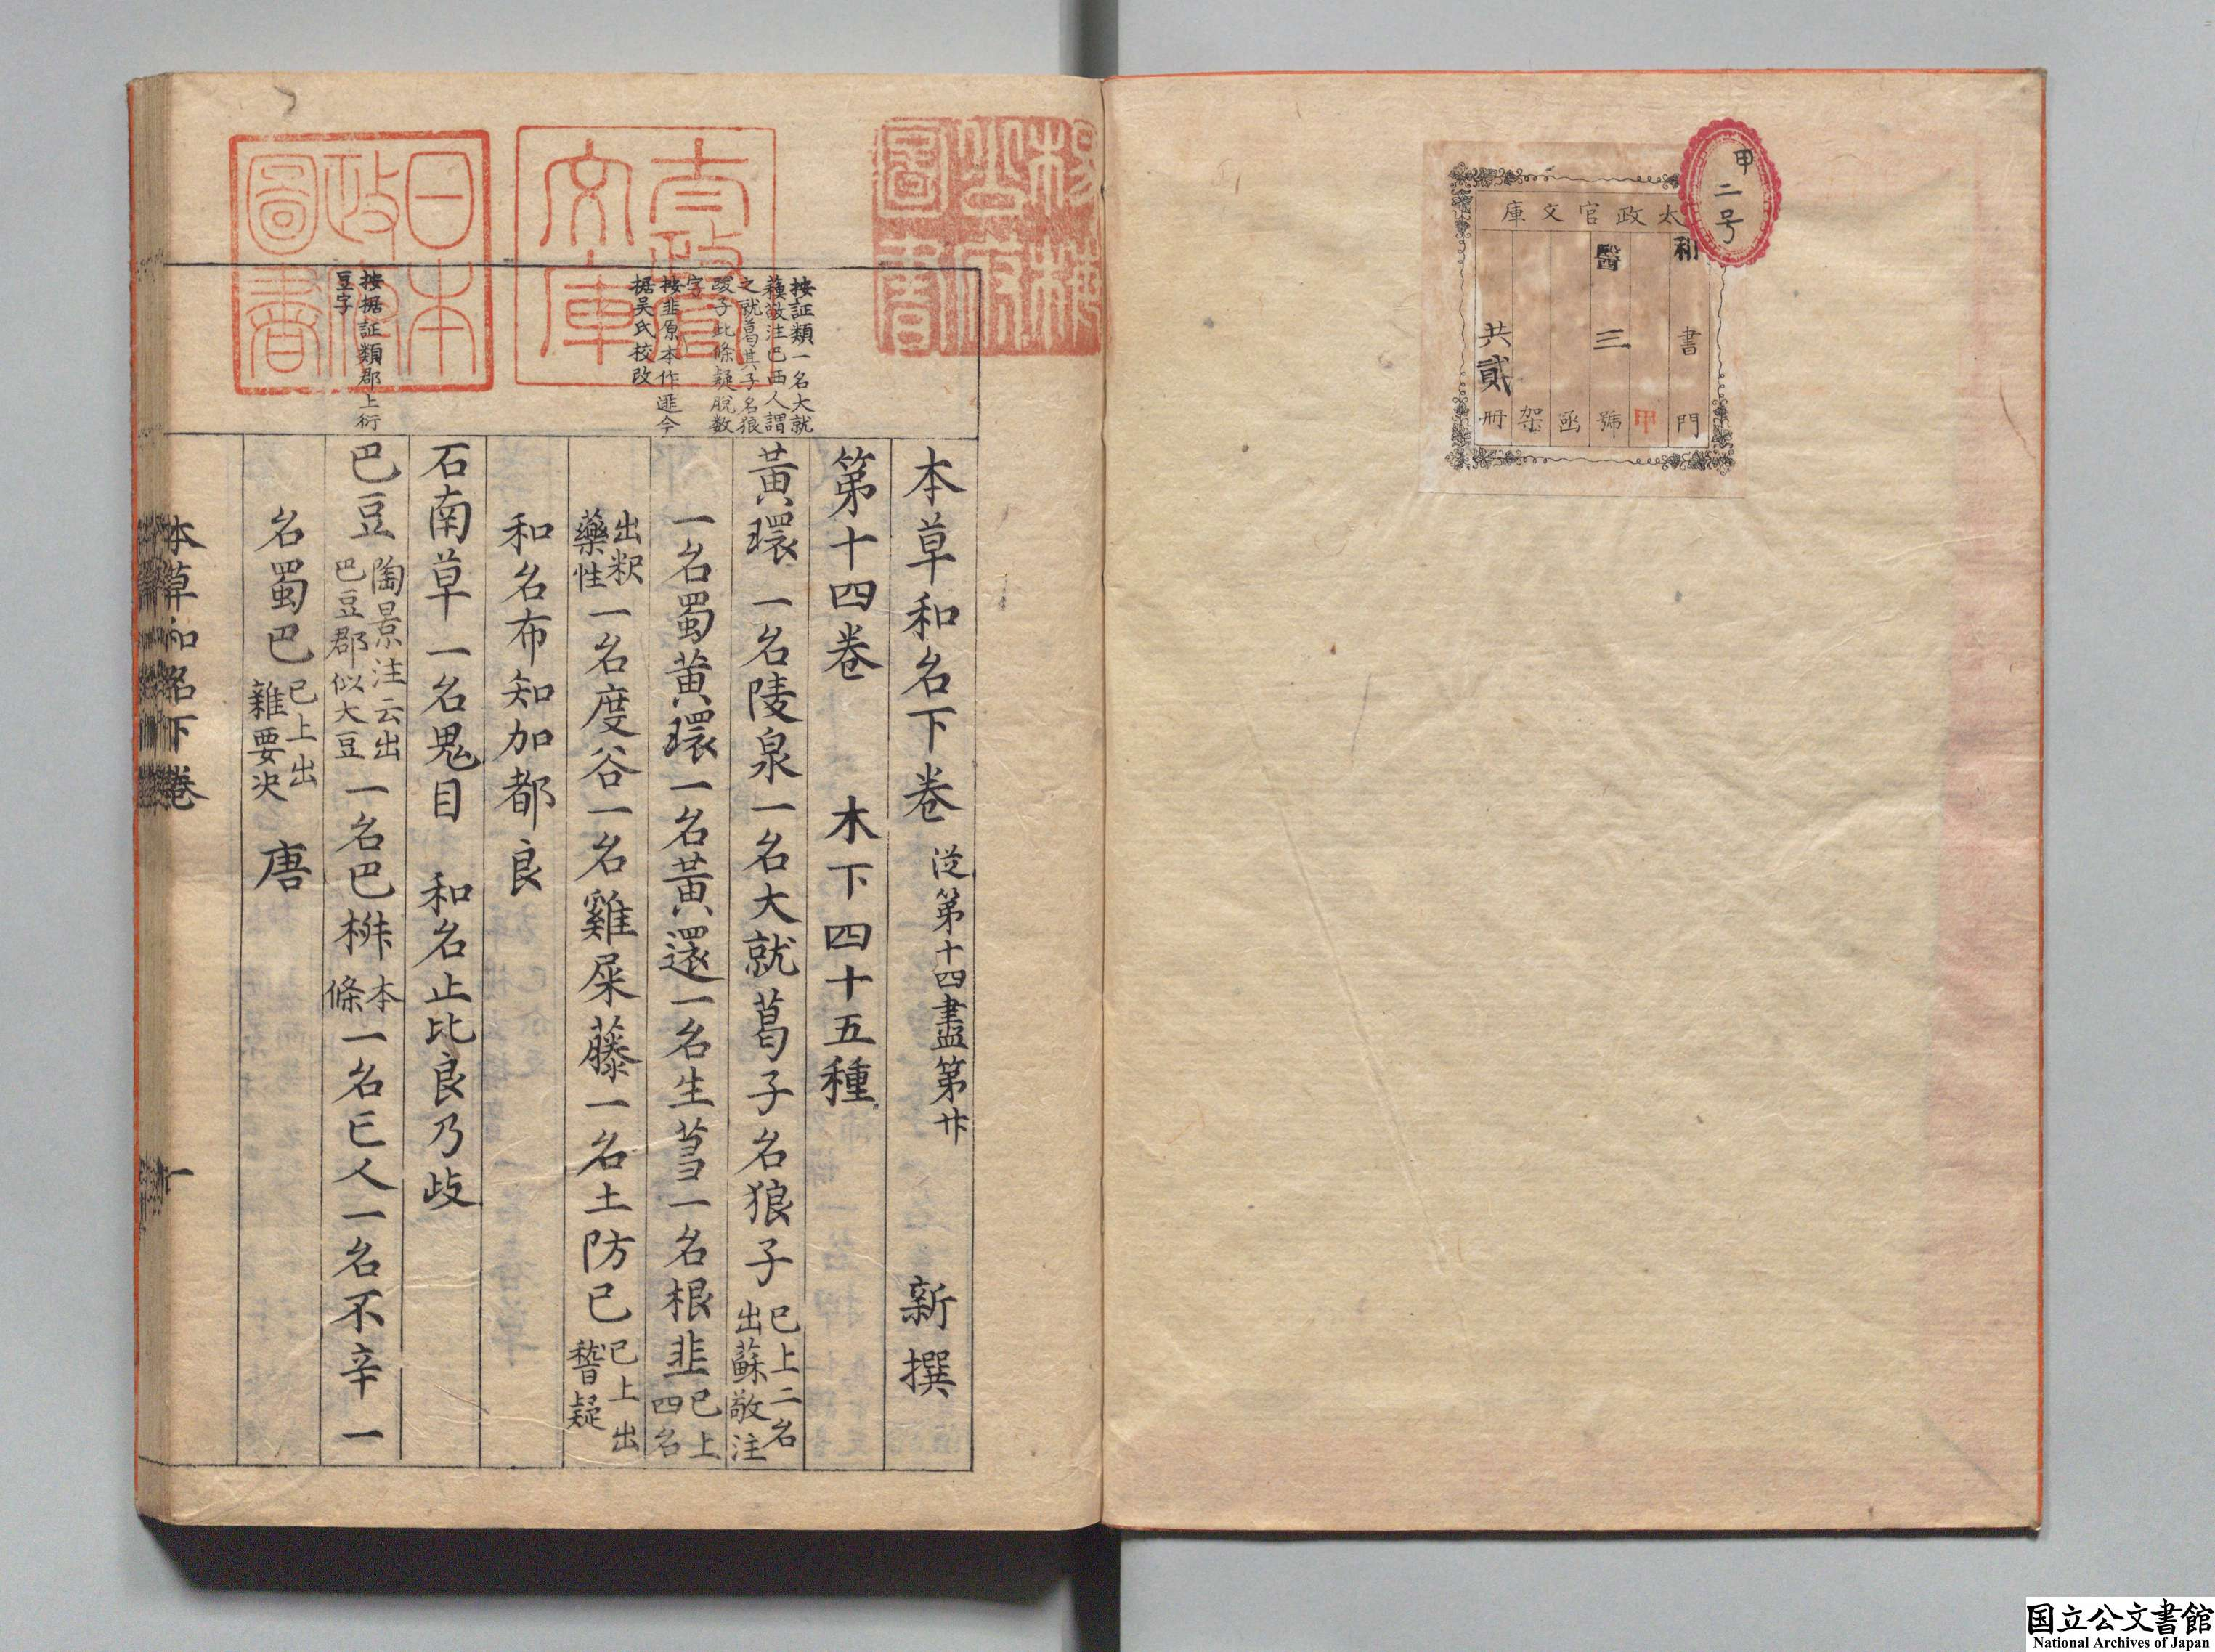 甲二号
太政官文庫
和書門
甲
醫三號
函
架
共貳冊
楊
圖書
太政官文庫
日本政府圖書
按証類一名大就
蘓敬注巴西人謂
之就葛其子名狼
跋子此條疑脫数
字
按韭原本作韮今
据吴氏校改
按据証類郡上衍
豆字
本草和名下卷 從第十四盡第廿 新撰
第十四卷 木下四十五種
黃環 一名陵泉一名大就葛子名狼子 已上二名出蘇敬注
一名蜀黃環一名黃還一名生芻一名根韭 已上四名
出釈藥性 一名度谷一名雞屎藤一名土防已 已上出稽疑
和名布知加都良
石南草一名鬼目 和名止比良乃歧
巴豆 陶景注云出巴豆郡似大豆 一名巴椒 本條 一名巴人一名不辛一
名蜀巴 已上出雜要决 唐
本草和名下卷 一
国立公文書館
National Archives of Japan